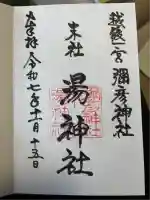 越後一宮 彌彦神社
末社
湯神社
令和七年十一月十五日